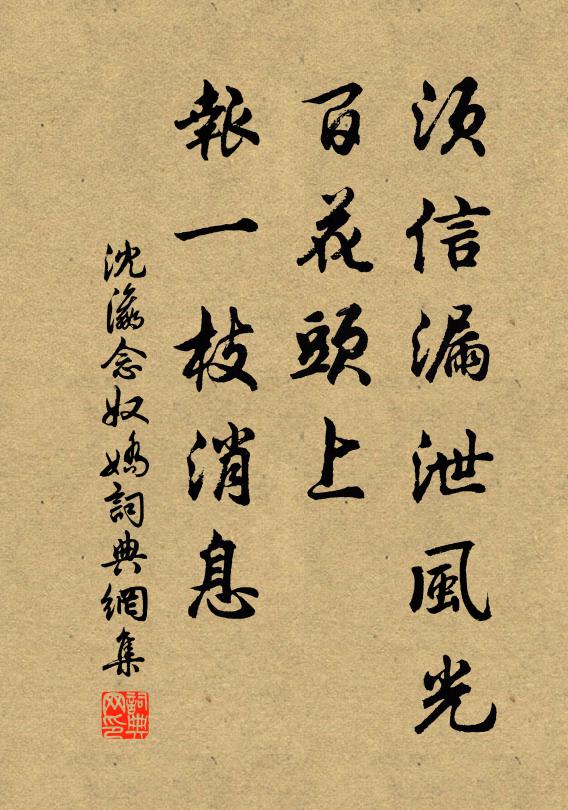 須信漏泄風光
百花頭上
報一枝消息
沈瀛念奴嬌詞典網集
詞典网印